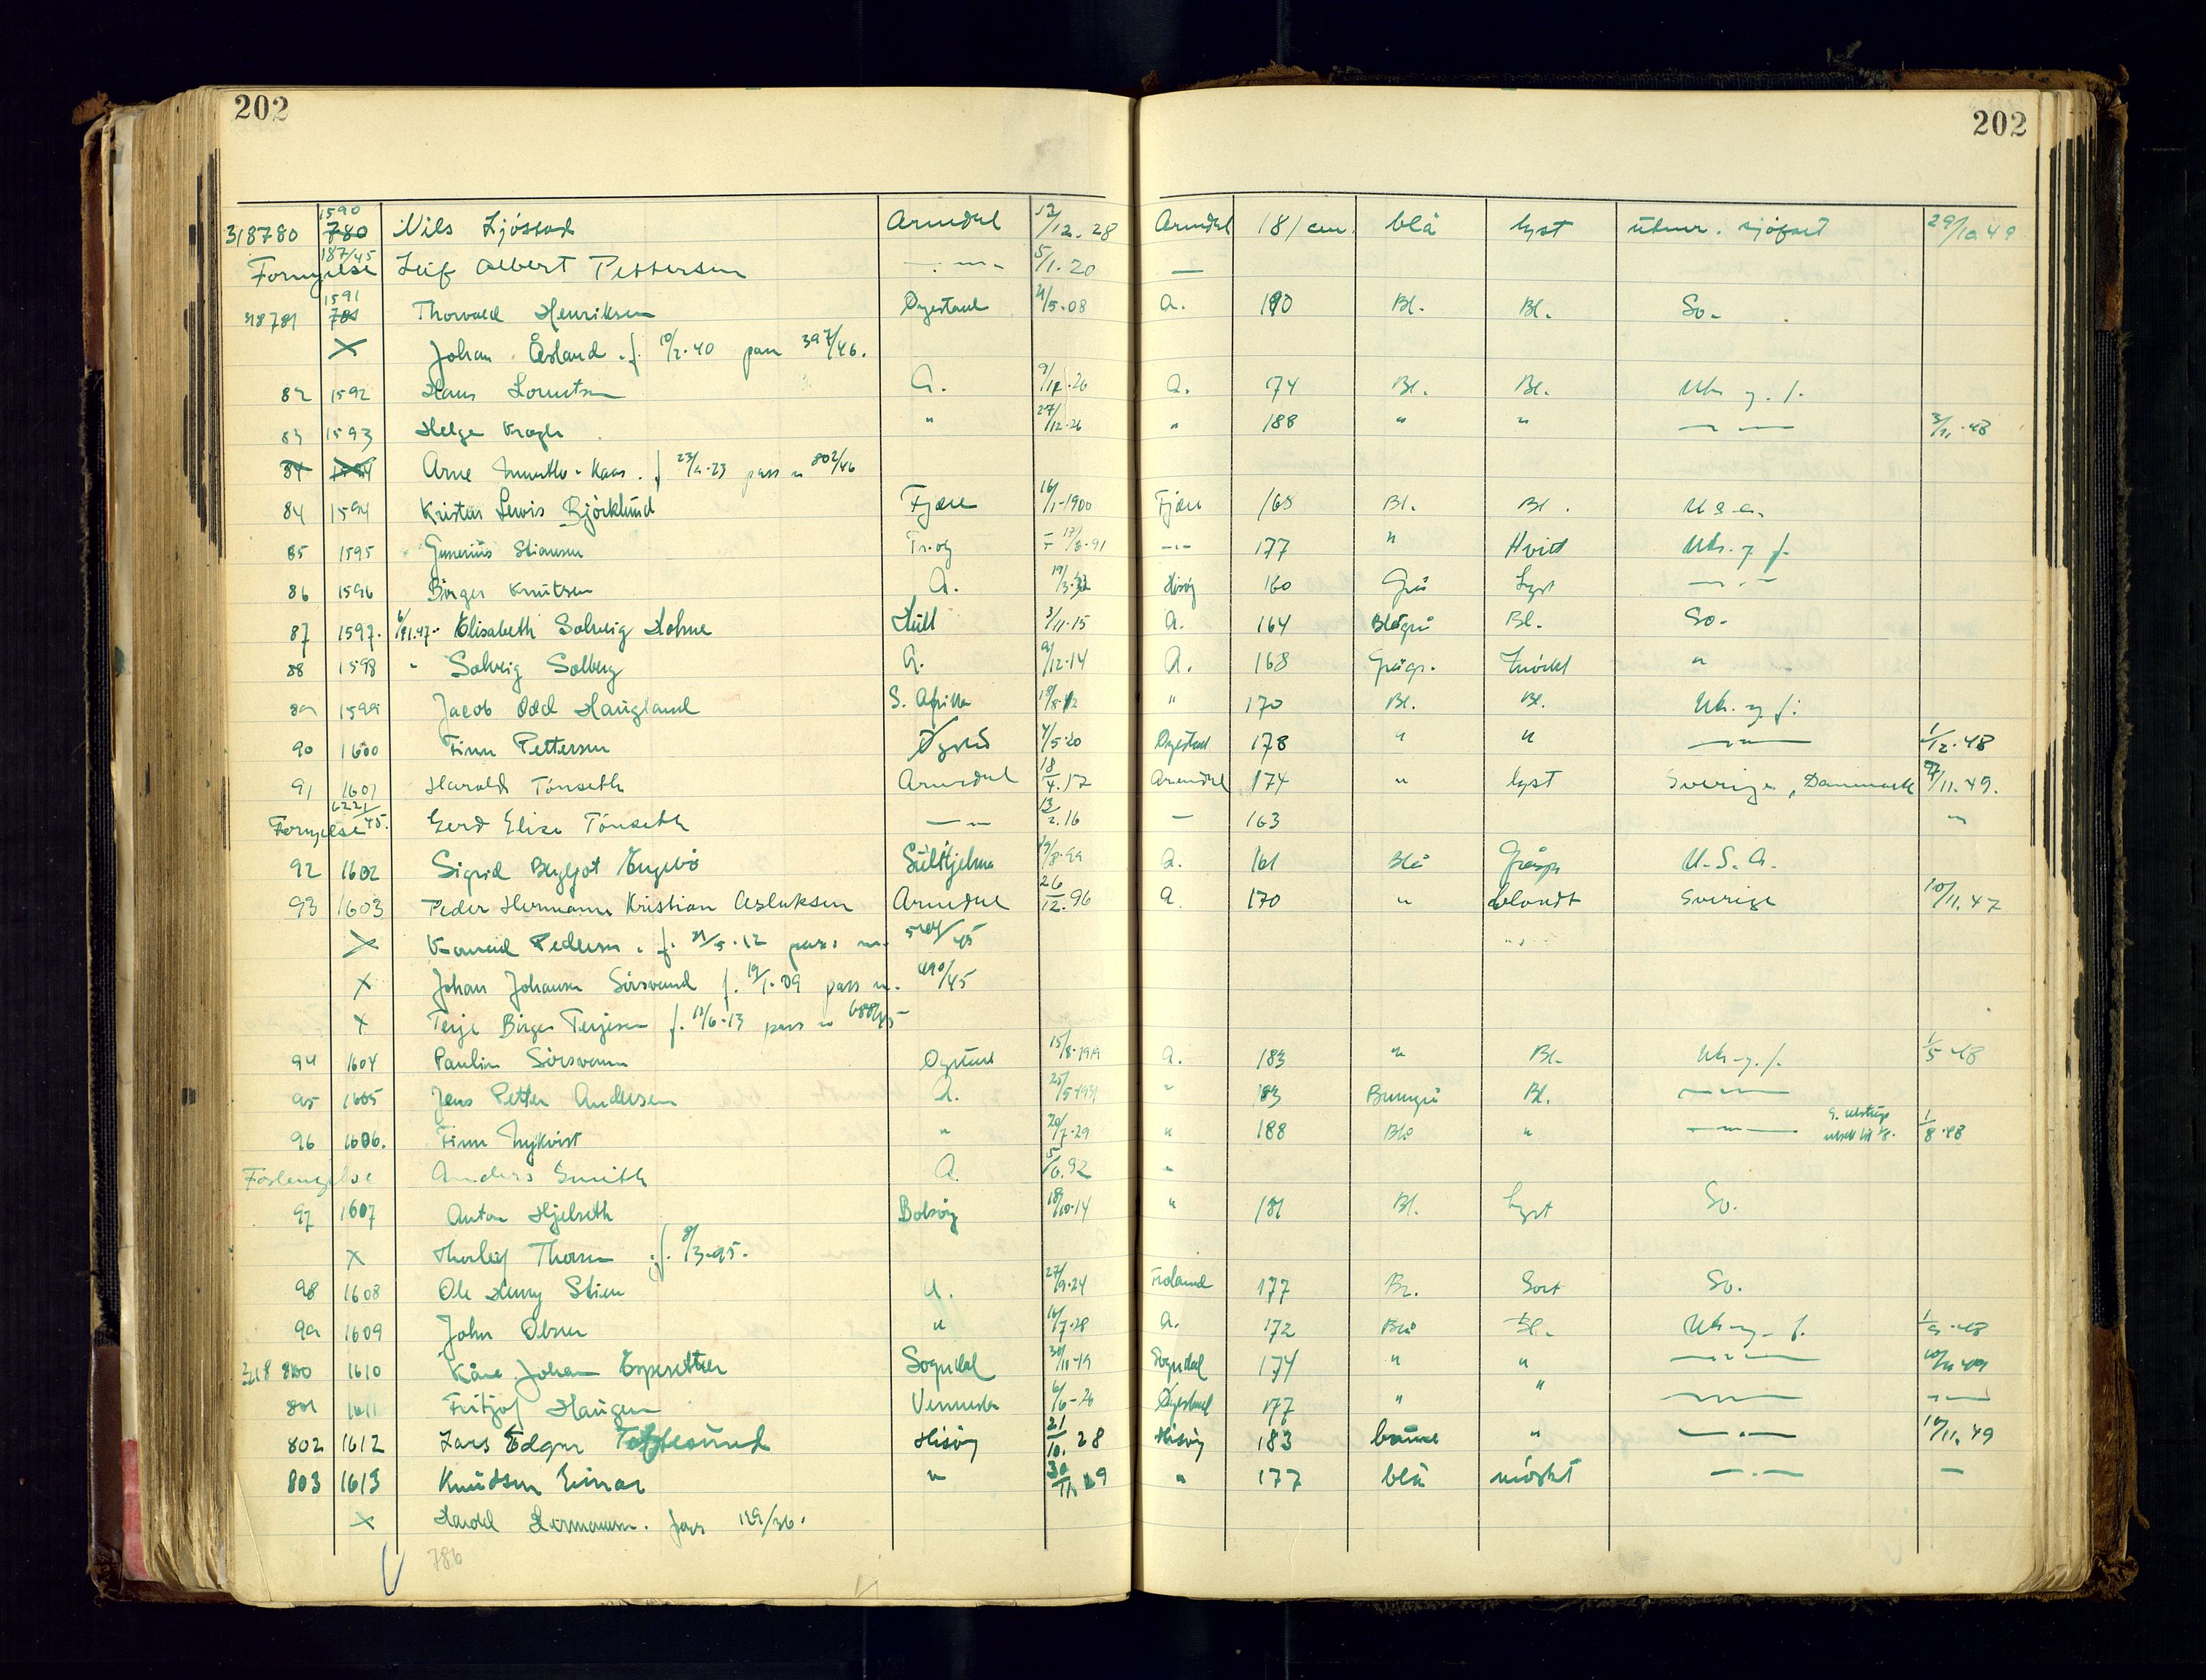 202 202
318780 1590 780 Nils Arendal 12/12.28 Arendal 181 cm. blå lyst utenr. sjøfart 29/10 49
Fornyelse 187/45 Leif Albert Pettersen 5/1.20
318781 1591 781 Thorvald Henriksen Øyestad 21/5.08 A. 190 Bl. Bl. So.
X Johan Åsland f. 10/2.40 pass 397/46.
82 1592 Hans Lorentsen A. A. 174 Bl. Bl. Utr. s. f.
83 1593 Helge Krogh " 27/12.26 " 188 " " 3/11.48
84 1594 Arne Munthe-Kaas. f 23/9.23 pass n 802/46
84 1594 Kristen Lewis Bjørklund Fjære 16/1-1900 Fjære 168 Bl. Bl. U.S.A.
85 1595 Gunerius Stiansen 17/8.91 177 " Hvitt Utr. s. f.
86 1596 Birger Knutsen A. Hisøy 160 Grå Lyst
87 1597. 6/11.47. Elisabeth Solveig Holme Hull 3/11.15 A. 164 Blågrå Bl. So.
88 1598 " Solveig Solberg A. 9/12.14 A. 168 Grågr. Mørkt "
89 1599 Jacob Odd Haugland S. Afrika " 170 Bl. Bl. Utr. s. f.
90 1600 Finn Pettersen Øystad 4/5.20 Øyestad 178 " " 1/12.48
91 1601 Harald Tønseth Arendal 18/4.17 Arendal 174 " lyst Sverige, Danmark 7/11.49.
Fornyelse 6221/45. Gerd Elise Tønseth 13/2.16 163 "
92 1602 Sigrid Bergljot Engebø Sulitjelma 19/8.99 A. 161 Blå Gråspr. U.S.A.
93 1603 Peder Hermann Kristian Aslaksen Arendal 26/12.96 A. 170 " blondt Sverige 10/11.47
X Konrad Pedersen. f. 21/5.12 pass nr.
X Johan Johansen Sørsvand f. 19/1.09 pass n. 490/45
X Terje Birger Terjesen f. 11/6.13 pass n
94 1604 Paulin Sørsvann Øystad 15/8.1919 A. 183 " Bl. Utr. s. f. 1/5 48
95 1605 Jens Petter Andersen A. " 183 Brungrå Bl.
96 1606. Finn Nykvist " 20/7.29 " 188 Blå " 1/8.48
Forlengelse Anders Smith A. "
97 1607 Anton Hjelseth Bolsøy 18/10.14 " 181 Bl. Lyst So.
X Thorleif Thorsen f. 8/3.95.
98 1608 Ole Henry Stien A. 27/9.24 Froland 177 Br. Sort So.
99 1609 John Olsen " 16/7.28 A. 172 Blå Bl. Utr. s. f. 1/9.48
318 800 1610 Kåre Johan Espesether Sogndal 30/11.19 Sogndal 174 " " 10/11 49
801 1611 Fritjof Haugen Vennesla 6/6-26 Øyestad 177 " "
802 1612 Lars Edgar Hisøy 21/10. 28 Hisøy 183 brune " 10/11.49
803 1613 Knudsen Einar " 30/11.29 " 177 blå mørkt
X Harald Hermansen. pass 129/36.
786